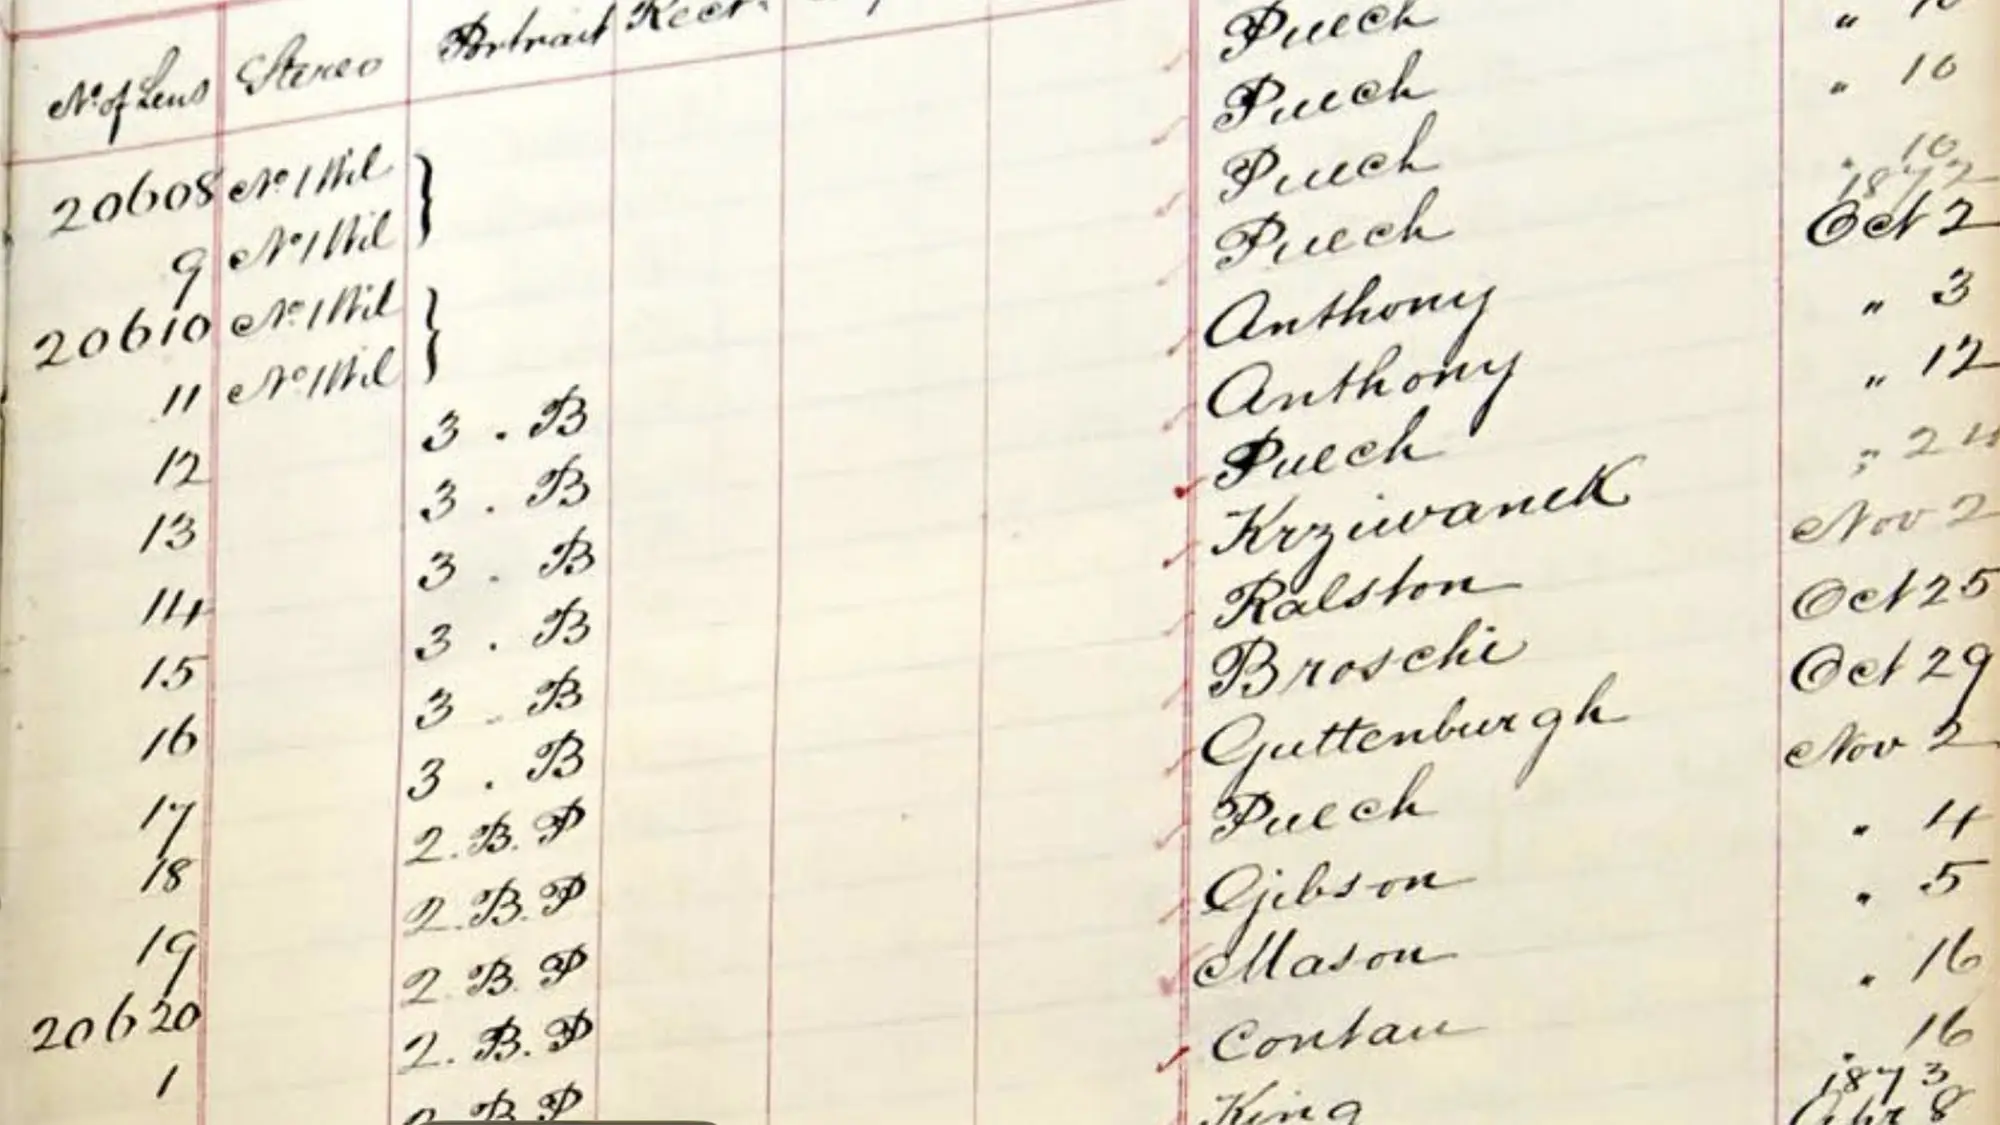 No of Lens Stereo Portrait Rect.
20608 No 1 Wil Puech " 10
9 No 1 Wil Puech " 10
20610 No 1 Wil Puech " 10
1872
11 No 1 Wil Puech Oct 2
12 3 . B Anthony " 3
13 3 . B Anthony " 12
14 3 . B Puech " 24
15 3 . B Krziwanek Nov 2
16 3 . B Ralston Oct 25
17 3 . B Broschi Oct 29
18 2. B. P Guttenburgh Nov 2
19 2. B. P Puech " 4
20620 2. B. P Gibson " 5
1 2. B. P Mason " 16
2. B. P Contau " 16
1873
King Apr 8